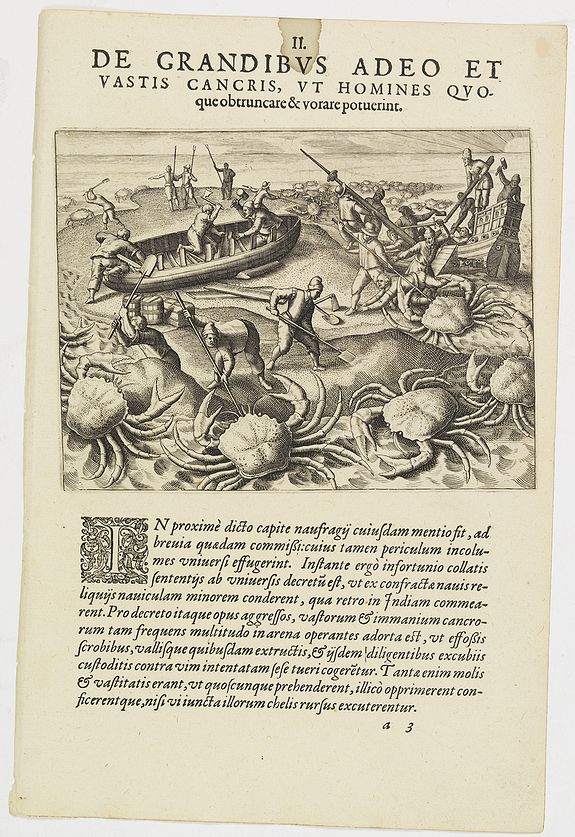 II.
DE GRANDIBVS ADEO ET
VASTIS CANCRIS, VT HOMINES QVO-
que obtruncare & vorare potuerint.
IN proximè dicto capite naufragij cuiuſdam mentio fit, ad
breuia quædam commiſsi: cuius tamen periculum incolu-
mes vniuerſi effugerint. Inſtante ergò infortunio collatis
ſententijs ab vniuerſis decretũ eſt, vt ex confractæ nauis re-
liquijs nauiculam minorem conderent, qua retro in Indiam commea-
rent. Pro decreto itaque opus aggreſſos, vaſtorum & immanium cancro-
rum tam frequens multitudo in arena operantes adorta eſt, vt effoſsis
ſcrobibus, vallisque quibuſdam extructis, & ijſdem diligentibus excubiis
cuſtoditis contra vim intentatam ſeſe tueri cogerẽtur. Tantæ enim molis
& vaſtitatis erant, vt quoſcunque prehenderent, illicò opprimerent con-
ficerentque, niſi vi iuncta illorum chelis rurſus excuterentur.
a 3